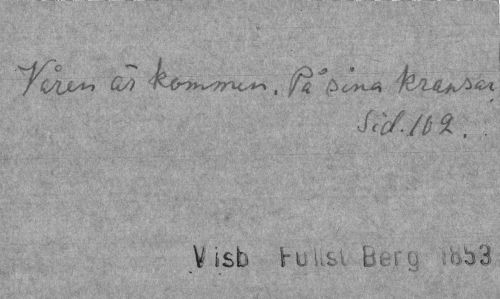 Våren är kommen. På sina kransar
Sid. 162.
Visb Fullst Berg 1853